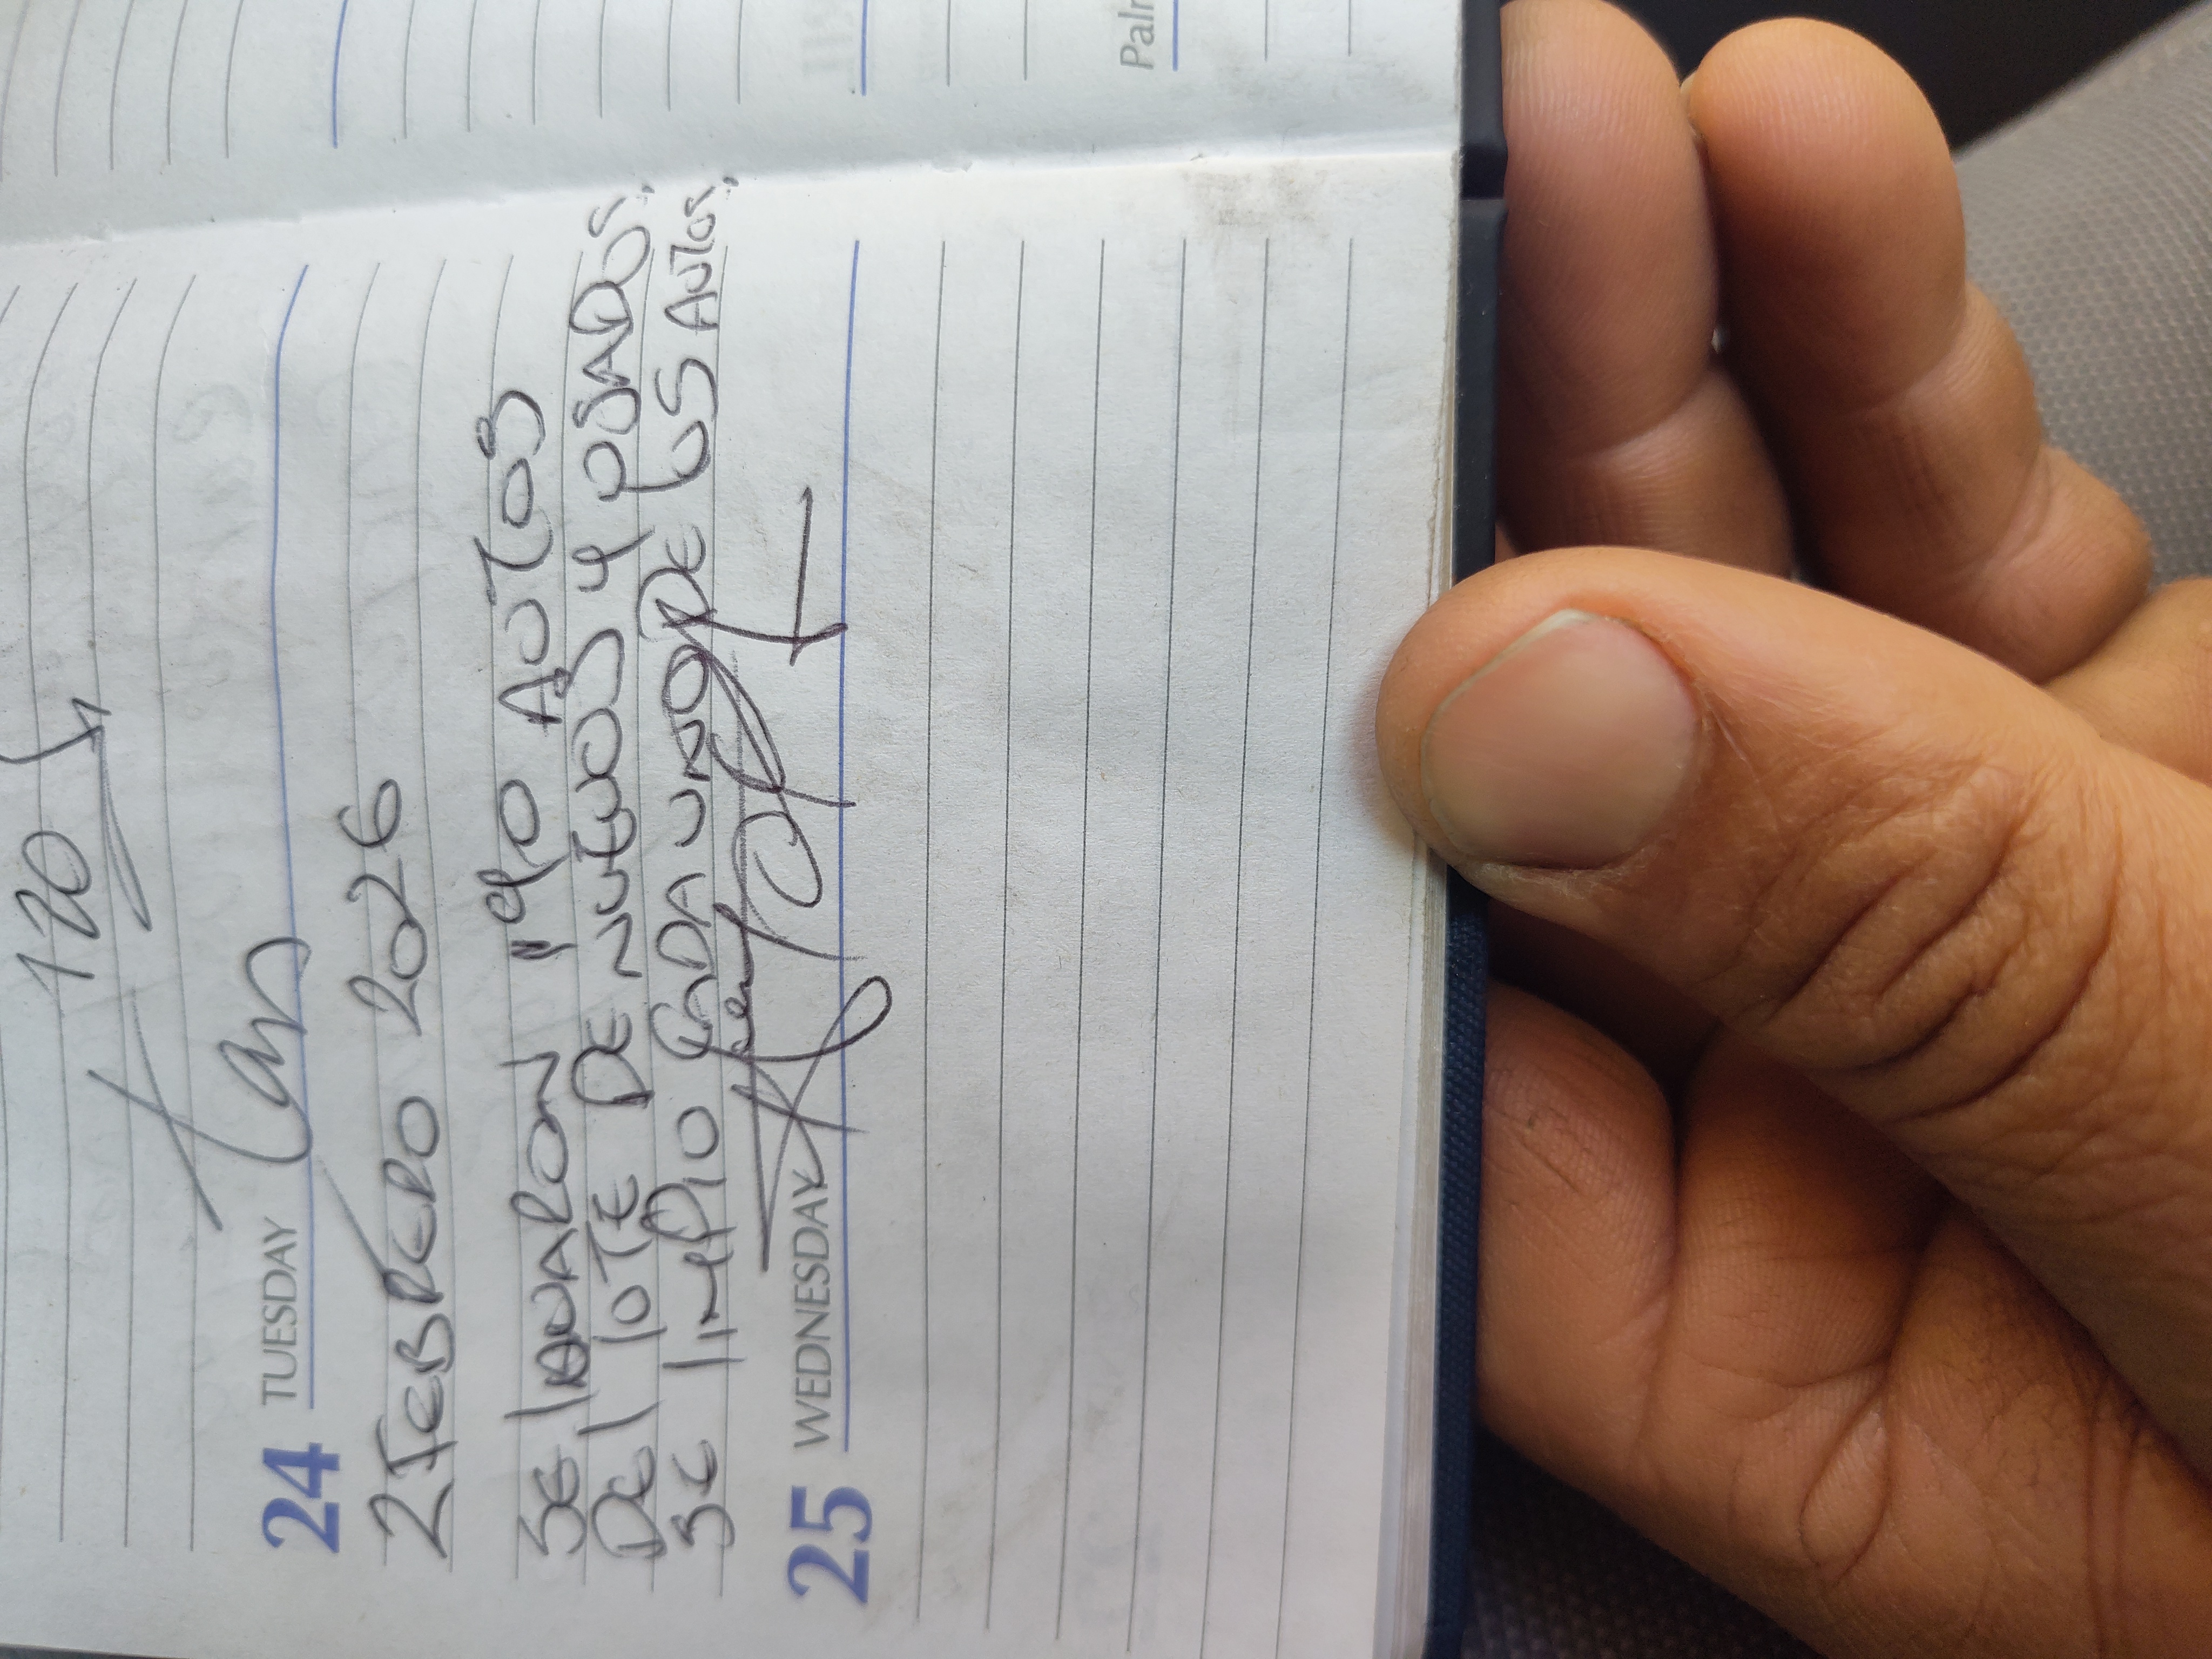 120
24 TUESDAY
2 FEBRERO 2026
SE lavaron "90 AUTOS
DEl lOTE DE NUEVOS y USADOS,
SE lIMPIO CADA UNO DE lOS AUTOS,
25 WEDNESDAY
Palm